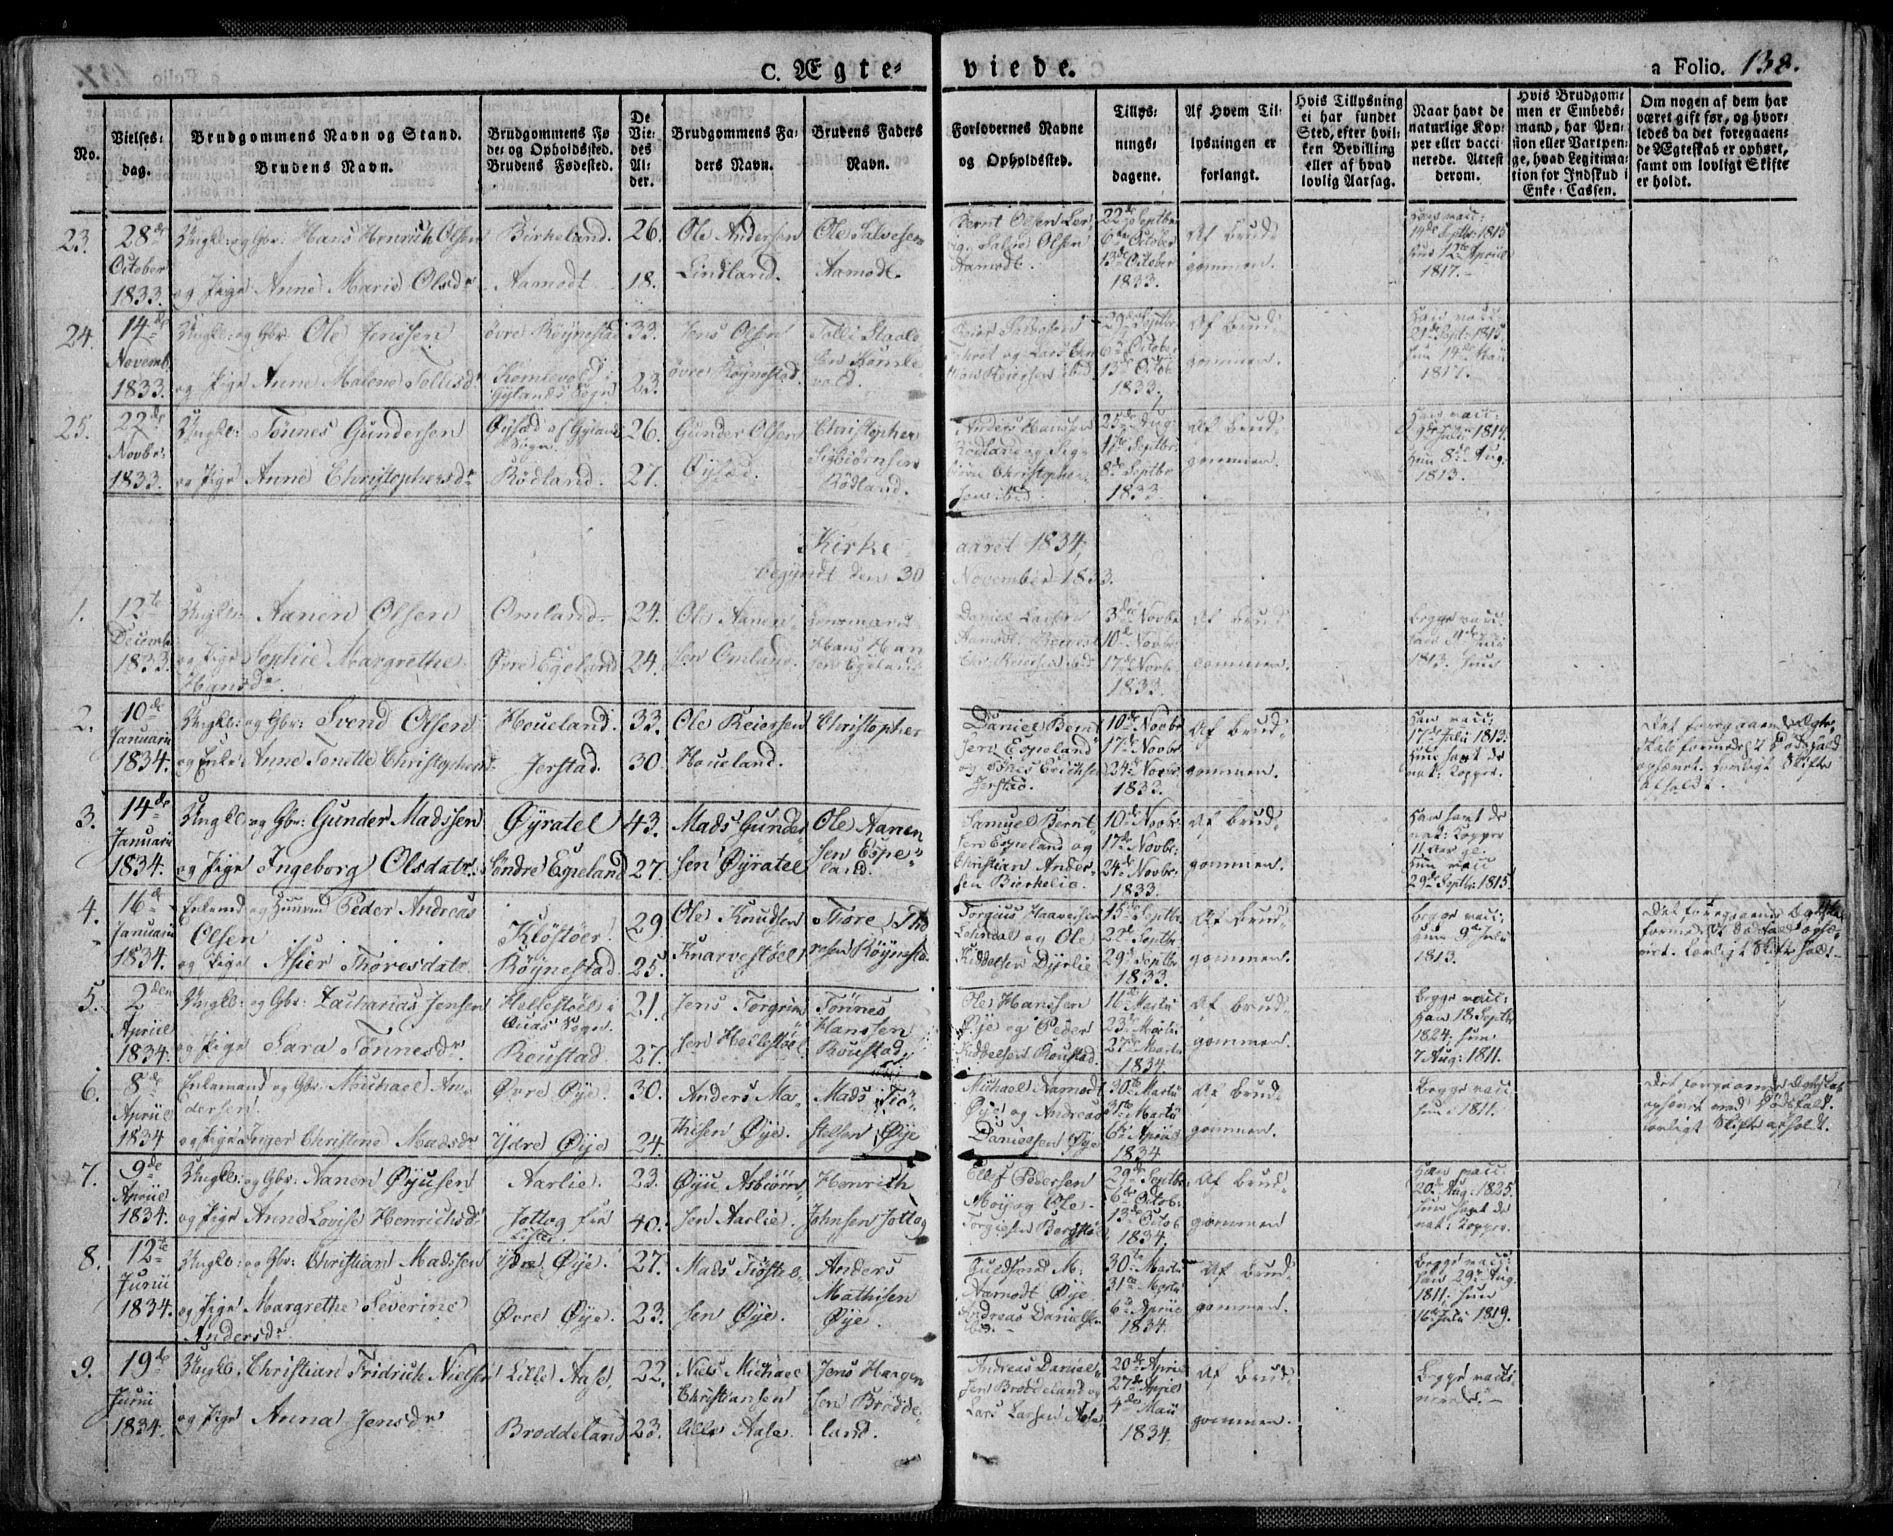 C. Ægte-
viede.
a Folio. 138.
No.
Vielses-
dag.
Brudgommens Navn og Stand.
Brudens Navn.
Brudgommens Fø
de- og Opholdssted.
Brudens Fødested.
De
Vie-
des
Al-
der.
Brudgommens Fa-
ders Navn.
Brudens Faders
Navn.
Forlovernes Navne
og Opholdssted.
Tillys-
nings-
dagene.
Af Hvem Til-
lysningen er
forlangt.
Hvis Tillysning
ei har fundet
Sted, efter hvil-
ken Bevilling
eller af hvad
lovlig Aarsag.
Naar havt de
naturlige Kop-
per eller vacci-
nerede. Attest
derom.
Hvis Brudgom-
men er Embeds-
mand, har Pen-
sion eller Vartpen-
ge, hvad Legitima-
tion for Indskud i
Enke-Cassen.
Om nogen af dem har
været gift før, og hvor-
ledes da det foregaaen-
de Ægteskab er ophørt,
samt om lovligt Skifte
er holdt.
23.
28de
October
1833.
Ungkl: og Gbr: Hans Henrich Olsen
og Pige Anne Marie Olsdr
Birkeland.
Aamodt
26.
18.
Ole Andersen
Lindland.
Ole Salvesen
Aamodt.
Bernt Olsen
Olsen
Aamodt.
22de Septbr
6te October
13de October
1833.
Af Brud-
gommen.
Han vacc:
14de Septbr 1815
Hun 12te Apriil
1817.
24.
14de
Novemb.
1833.
Ungkl: og Gbr. Ole Jenssen
og Pige Anne Malene Tollisdr
øvre Røynestad
Komlevold i
Gylands Sogn
33.
23.
Jens Olsen
øvre Røynestad.
Tolli Staale
sen Komle
vold.
29de Septbr
6te Octobr
13de Octob
1833.
Af Brud-
gommen.
Han vacc:
21de Sept: 1815
Hun 19de Mai
1817.
25.
22de
Novbr:
1833.
Ungkl: Tønnes Gundersen
og Pige Anne Christophersdr
Øysæd af Gylands
Sogn.
Rødland.
26.
27.
Gunder Olsen
Øysæd.
Christopher
Sigbiørnsen
Rødland.
Anders Hansen
Rødland og Sig-
biørn Christopher-
sen ibid.
25de Aug:
1te Septbr.
8de Septbr
1833.
Af Brud-
gommen.
Han vacc:
1814.
Hun 8de Aug.
1813.
Kirke
aaret 1834,
begyndt den 30
November 1833.
1.
12te
Decembr
1833.
Ungkl: Aanen Olsen
og Pige Sophie Margrethe
Hansdr.
Omland.
Øvre Egeland
24.
24.
Ole Aanen-
sen Omland.
Lensmand
Hans Han
sen Egeland
Daniel Larsen
Aamodt.
3die Novbr
10de Novbr.
17de Novbr.
1833.
Af Brud-
gommen.
Begge vacc:
1813. Hun
2.
10de
Januarii
1834.
Ungkl: og Gbr: Svend Olsen
og Enke Anne Tonette Christophersdr
Houeland.
Jerstad.
33.
30.
Ole Reiersen
Houeland.
Christopher
Daniel Bernt
sen Espeland
og Tønes Erichsen
Jerstad.
10de Novbr
17de Novbr.
24de Novbr.
1833.
Af Brud-
gommen.
Han vacc:
17de Juli 1813.
Hun havt de
nat: Kopper.
Det foregaaende Ægte-
skab formedelst Dødsfald
ophævet. Lovligt Skifte
afholdt.
3.
14de
Januarii
1834.
Ungkl: og Gbr: Gunder Madssen
og Pige Ingeborg Olsdatr.
Øyratel
Søndre Egeland
43.
27.
Mads Gunder
sen Øyratel
Ole Aanen
sen Espe-
land.
Samuel Bernt-
sen Espeland og
Christian Ander-
sen Bierkelie.
10de Novbr:
17de Novbr:
24de Novbr:
1833.
Af Brud-
gommen.
Han havt de
nat: Kopper
11 Aar gl.
Hun vacc
29de Septbr: 1815
4.
16de
Januarii
1834.
Enkemd og Huusmd Peder Andreas
Olsen
og Pige Asier Thoresdatr.
Kløstøer
Røynestad
29
25.
Ole Knudsen
Knarvestøel
Thore Tho
resen Røynestd.
Torguus Haavorsen
Lohndal og Ole
Kiddelsen Dyrlie
15de Septbr
22de Septbr
29de Septbr
1833.
Af Brud-
gommen.
Begge vacc:
Hun 9de Juli
1813.
Det foregaaende Ægteskab
formedelst Dødsfald ophæ-
vet. Lovligt Skifte holdt.
5.
2den
Apriil
1834.
Ungkl: og Gbr: Zacharias Jensen
og Pige Sara Tønnesdr.
Hellestøel i
Qvas Sogn.
Roustad
21.
27.
Jens Torgrim
sen Hellestøel
Tønnes
Hanssen
Roustad.
Ole Hanssen
Øye og Peder
Kiddelsen Roustad
16de Martii
23de Martii
27de Martii
1834.
Af Brud-
gommen.
Begge vacc:
Han 18 Septbr
1824; Hun
7 Aug: 1811.
6.
8de
Apriil
1834
Enkemand og Gbr: Michael An-
dersen
og Pige Inger Christine Madsdr
Øvre Øye.
Ydre Øye
30.
24.
Anders Ma-
thisen Øye.
Mads Tiø-
stelsen Øye
Michael Aamodt
Øye og Andreas
Danielsen Øye
30te Martii
31te Martii
6te Apriil
1834
Af Brud-
gommen.
Begge vacc:
Hun 1811.
Det foregaaende Ægteskab
ophævet ved Dødsfald.
Lovligt Skifte afholdt.
7.
9de
Apriil
1834.
Ungkl: og Gbr: Aanen Øyusen
og Pige Anne Lovise Henrichsdr
Aarlie.
Jottog fra
Lister.
23.
40.
Øyu Asbiørn-
sen Aarlie.
Henrich
Johnsen Jottog
Ellef Pedersen
Moi og Ole
Torgiersen Bergstøl
29de Septbr
6te Octob:
13de Octob
1834.
Af Brud-
gommen
Han vacc:
20de Aug: 1825.
Hun havt de
nat: Kopper.
8.
12te
Junii
1834.
Ungkl: og Gbr: Christian Madssen
og Pige Margrethe Severine
Andersdr
ydre Øye.
Øvre Øye.
27.
23.
Mads Tiøstel-
sen Øye.
Anders
Mathisen
Øye.
Guldsand M:
Aamodt Øye
Andreas Danielsen
ibd.
30te Marti
31te Marti
6te Apriil
1834.
Af Brud-
gommen.
Begge vacc:
Han 29de Aug.
1811; Hun
16de Juli 1819.
9.
19de
Junii
1834.
Ungkl: Christian Fridrich Nielsen
og Pige Anna Jensdr
Lille Aase.
Broddeland
22.
23.
Niels Michael
Christiansen
Lille Aase.
Jens Haagen
sen Brodde-
land.
Andreas Daniel-
sen Broddeland og
Lars Larsen Aase
20de April
27de April
4de Maii
1834.
Af Brud-
gommen.
Begge vacci-
nerede.